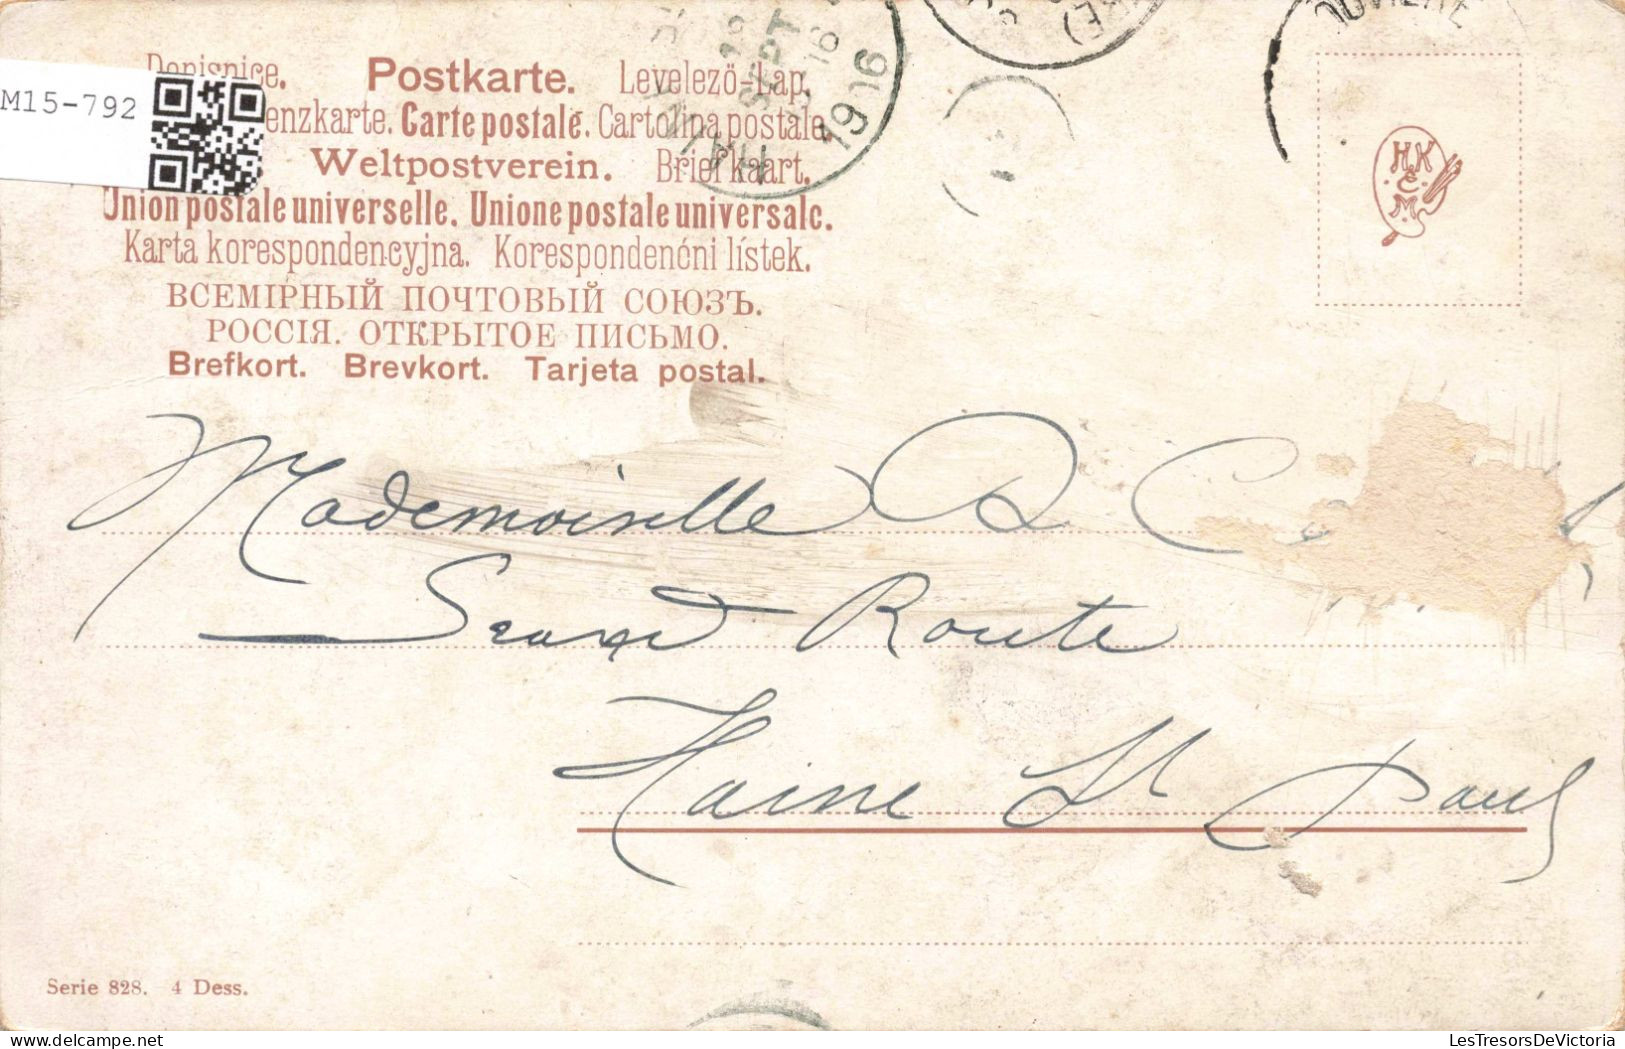 M15-792
Dopisnice. Postkarte. Levelező-Lap.
enzkarte. Carte postale. Cartolina postale.
Weltpostverein. Briefkaart.
Union postale universelle. Unione postale universale.
Karta korespondencyjna. Korespondenćni lístek.
ВСЕМІРНЫЙ ПОЧТОВЫЙ СОЮЗЪ.
РОССІЯ. ОТКРЫТОЕ ПИСЬМО.
Brefkort. Brevkort. Tarjeta postal.
SEPT
16
1906
HK
&
M
Mademoiselle
Grand Route
Haine St Paul
Serie 828. 4 Dess.
LesTresorsDeVictoria